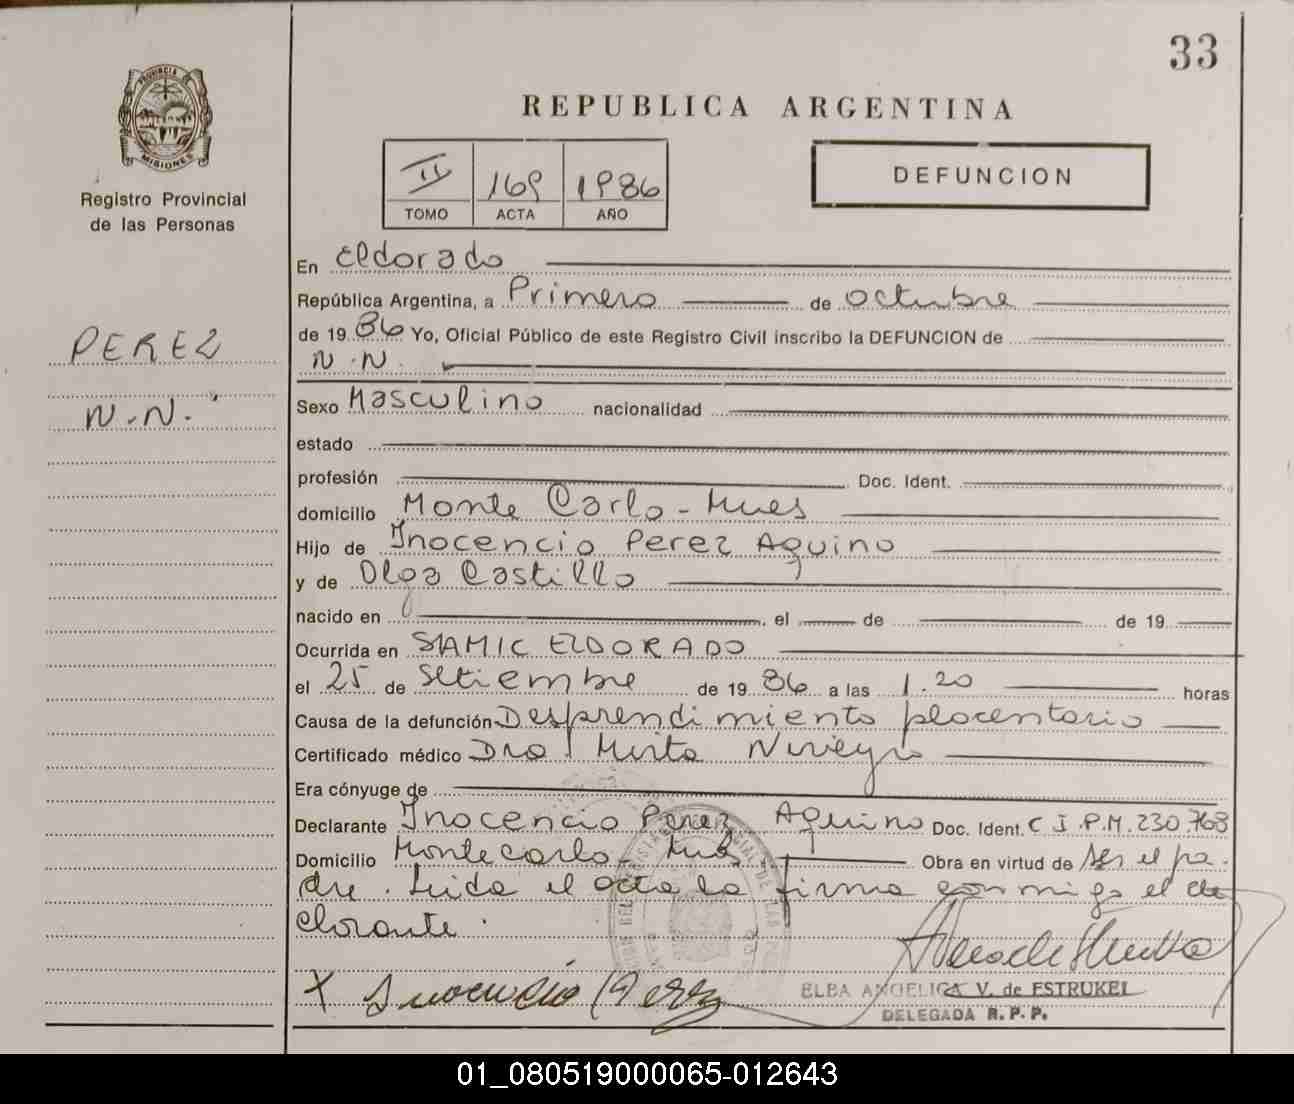 33
PROVINCIA DE
MISIONES
Registro Provincial
de las Personas
PEREZ
N.N.
REPUBLICA ARGENTINA
II 169 1986
TOMO ACTA AÑO
DEFUNCION
En Eldorado
República Argentina, a Primero de octubre
de 1986 Yo, Oficial Público de este Registro Civil inscribo la DEFUNCION de
N.N.
Sexo Masculino nacionalidad
estado
profesión Doc. Ident.
domicilio Monte Carlo - Mnes
Hijo de Inocencio Perez Aquino
y de Olga Castillo
nacido en , el de de 19
Ocurrida en SAMIC ELDORADO
el 25 de Setiembre de 1986 a las 1.20 horas
Causa de la defunción Desprendimiento placentario
Certificado médico Dra Mirta
Era cónyuge de
Declarante Inocencio Perez Aquino Doc. Ident. C I.P.M. 230.768
Domicilio Montecarlo - Mnes Obra en virtud de ser el pa-
dre. Leida el acta la firma conmigo el de
clarante.
X Inocencio Perez
ELBA ANGELICA V. de ESTRUKEL
DELEGADA R.P.P.
01_080519000065-012643